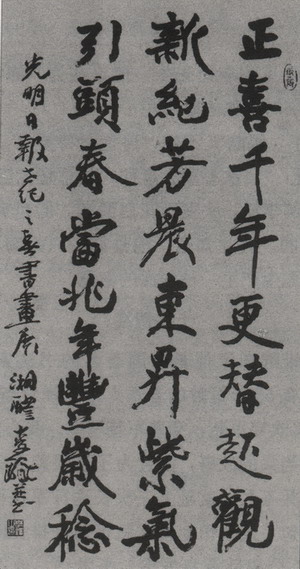 正喜千年更替起觀
新紀芳晨東昇紫氣
引頭春當兆年豐歲稔
光明日報世紀之書畫展 湘醴